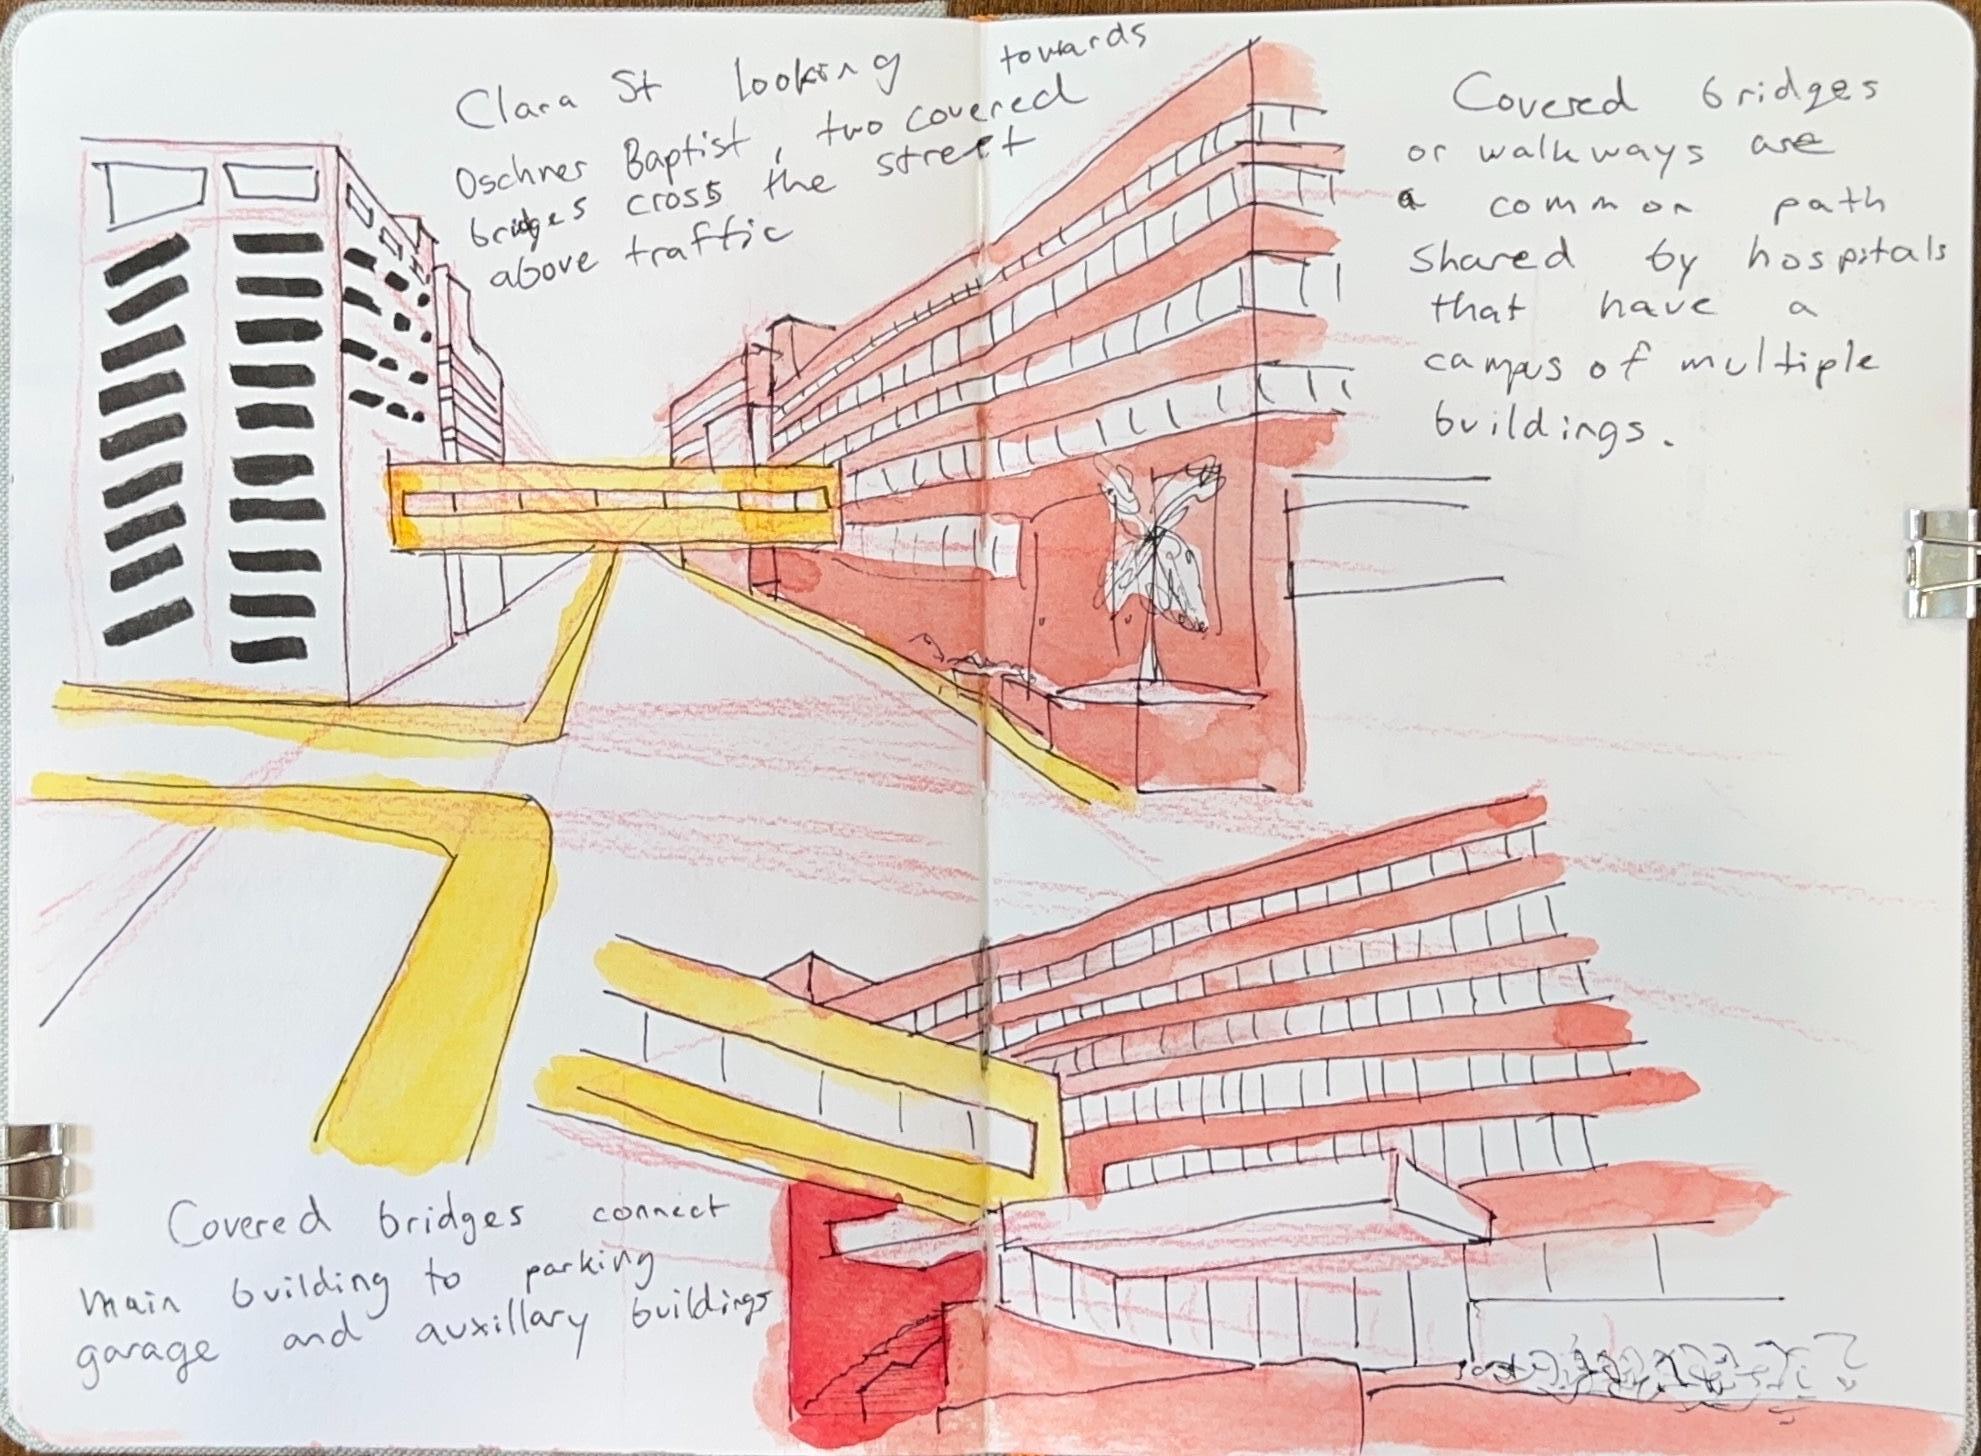 Clara St looking towards
Oschner Baptist, two covered
bridges cross the street
above traffic
Covered bridges
or walkways are
a common path
shared by hospitals
that have a
campus of multiple
buildings.
Covered bridges connect
main building to parking
garage and auxillary buildings